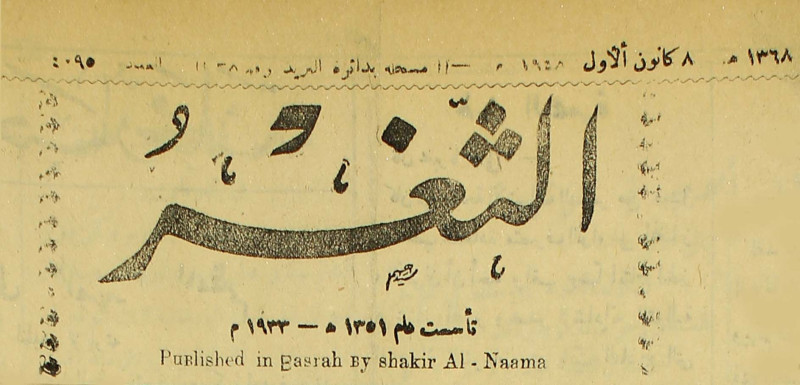 ١٣٦٨ هـ ٨ كانون ألاول ١٩٤٨ م مسجلة بدائرة البريد العدد ٤٠٩٥
الثَّغْرُ
تأسست عام ١٣٥١ ه — ١٩٣٣ م
Published in Basrah By shakir Al - Naama